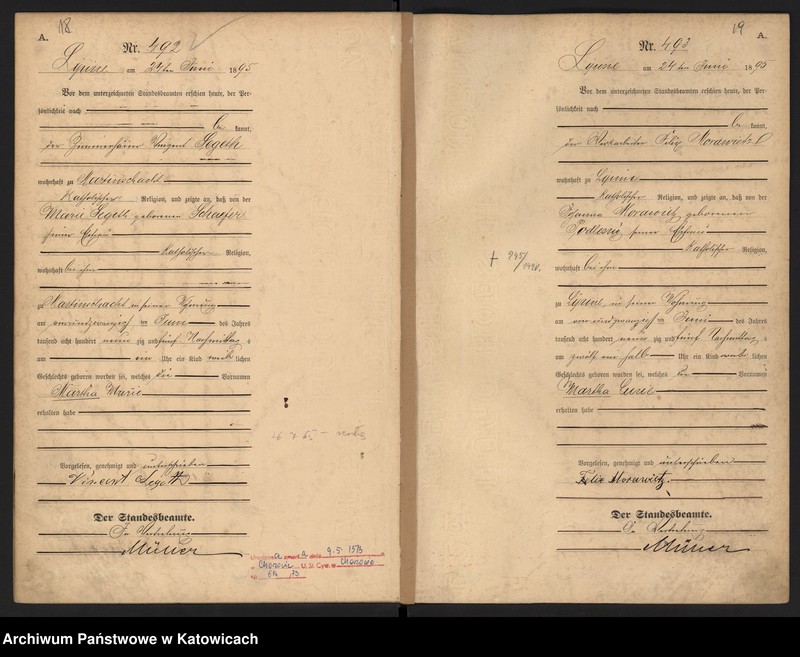 18
A.
Nr. 492
Lipine am 24ten Juni 1895
Vor dem unterzeichneten Standesbeamten erschien heute, der Per-
sönlichkeit nach
be kannt,
der Zimmerhäuer Vincent Segeth
wohnhaft zu Martinschacht
katholischer Religion, und zeigte an, daß von der
Marie Segeth geborenen Schaefer
seiner Ehefrau
katholischer Religion,
wohnhaft bei ihm
zu Martinschacht in seiner Wohnung
am einundzwanzigsten Juni des Jahres
tausend acht hundert neun zig und fünf Nachmittags
um ein Uhr ein Kind weib lichen
Geschlechts geboren worden sei, welches die Vornamen
Martha Marie
erhalten habe
Vorgelesen, genehmigt und unterschrieben
Vincent Segeth
Der Standesbeamte.
In Vertretung
Müller
9.5. 1973
Chorzów U.S. Cyw. w Chorzowie
73
19
A.
Nr. 493
Lipine am 24ten Juni 1895
Vor dem unterzeichneten Standesbeamten erschien heute, der Per-
sönlichkeit nach
be kannt,
der Felix Morawietz
wohnhaft zu Lipine
katholischer Religion, und zeigte an, daß von der
Johanna Morawietz geborenen
Podlesny seiner Ehefrau
katholischer Religion,
† 945/
wohnhaft bei ihm
zu Lipine, in seiner Wohnung
am Juni des Jahres
tausend acht hundert neun zig und fünf Nachmittags
um zwölf ein halb Uhr ein Kind weib lichen
Geschlechts geboren worden sei, welches die Vornamen
Martha Lucie
erhalten habe
Vorgelesen, genehmigt und unterschrieben
Felix Morawietz.
Der Standesbeamte.
In Vertretung
Müller
Archiwum Państwowe w Katowicach